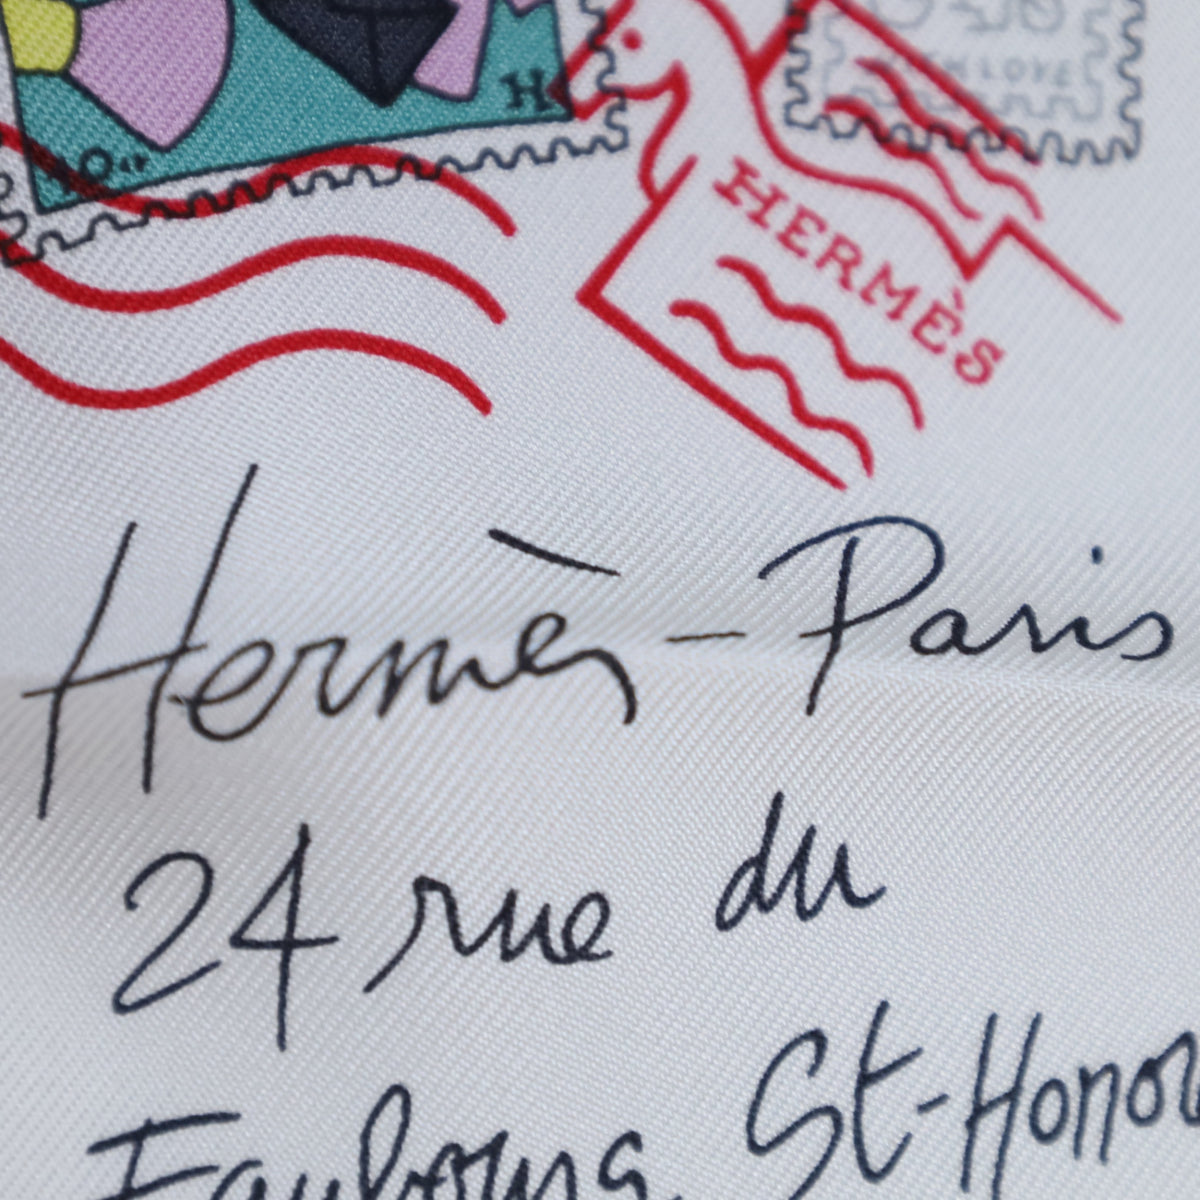 H
10
WITH LOVE
HERMÈS
Hermès - Paris
24 rue du
Faubourg St-Honor